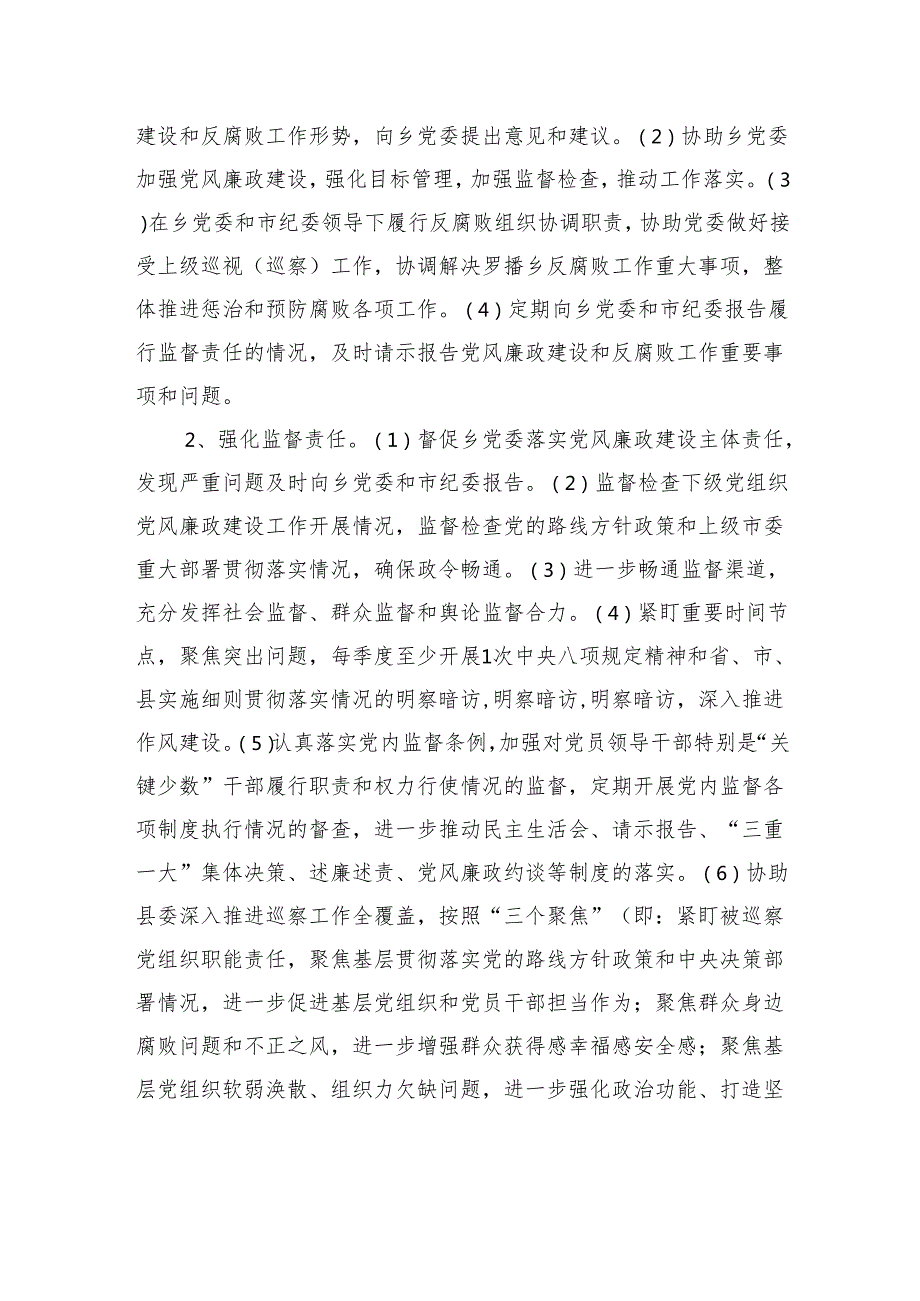 建设和反腐败工作形势，向乡党委提出意见和建议。(2)协助乡党委
加强党风廉政建设,强化目标管理,加强监督检查,推动工作落实。(3
)在乡党委和市纪委领导下履行反腐败组织协调职责,协助党委做好接
受上级巡视（巡察）工作，协调解决罗播乡反腐败工作重大事项，整
体推进惩治和预防腐败各项工作。(4)定期向乡党委和市纪委报告履
行监督责任的情况，及时请示报告党风廉政建设和反腐败工作重要事
项和问题。
2、强化监督责任。(1)督促乡党委落实党风廉政建设主体责任，
发现严重问题及时向乡党委和市纪委报告。(2)监督检查下级党组织
党风廉政建设工作开展情况，监督检查党的路线方针政策和上级市委
重大部署贯彻落实情况，确保政令畅通。(3)进一步畅通监督渠道，
充分发挥社会监督、群众监督和舆论监督合力。(4)紧盯重要时间节
点，聚焦突出问题，每季度至少开展1次中央八项规定精神和省、市、
县实施细则贯彻落实情况的明察暗访,明察暗访,明察暗访，深入推进
作风建设。(5)认真落实党内监督条例,加强对党员领导干部特别是“关
键少数”干部履行职责和权力行使情况的监督，定期开展党内监督各
项制度执行情况的督查，进一步推动民主生活会、请示报告、“三重
一大”集体决策、述廉述责、党风廉政约谈等制度的落实。(6)协助
县委深入推进巡察工作全覆盖，按照“三个聚焦”（即：紧盯被巡察
党组织职能责任，聚焦基层贯彻落实党的路线方针政策和中央决策部
署情况，进一步促进基层党组织和党员干部担当作为；聚焦群众身边
腐败问题和不正之风，进一步增强群众获得感幸福感安全感；聚焦基
层党组织软弱涣散、组织力欠缺问题，进一步强化政治功能、打造坚